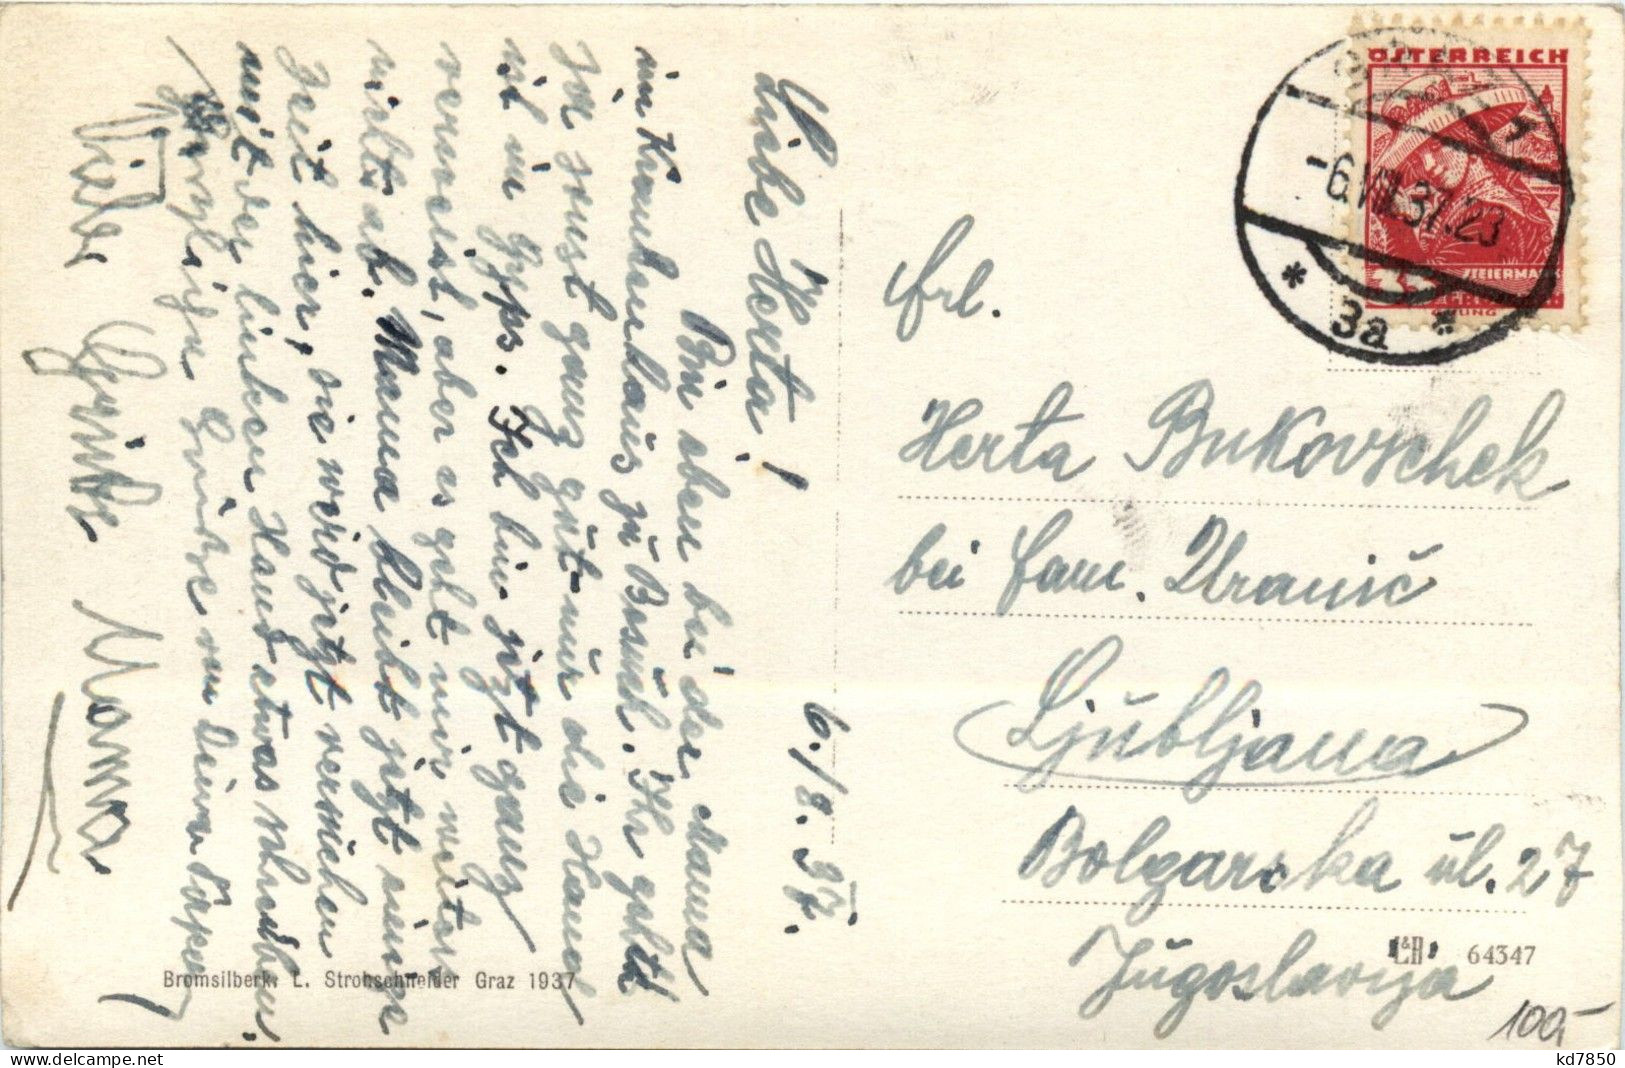 6./8. 37.
Liebe Herta!
Bin eben bei der Mama
im Krankenhaus zu Besuch. Ihr geht's
ja sonst ganz gut - nur die Hand
ist in Gyps. Ich bin jetzt ganz
verwaist, aber es geht mir weiters
nichts ab. Mama bleibt jetzt einige
Zeit hier, sie wird jetzt versuchen
mit der linken Hand etwas schreiben.
Herzliche Grüße von Deinem
Viele Grüße Mama
ÖSTERREICH
-6.VIII.37.23
STEIERMARK
35
* 3a *
Frl.
Herta Bukovschek
bei Fam. Uranič
Ljubljana
Bolgarska ul. 27
Jugoslavija
L&R 64347
100,-
Bromsilberk. L. Strohschneider Graz 1937
kd7850